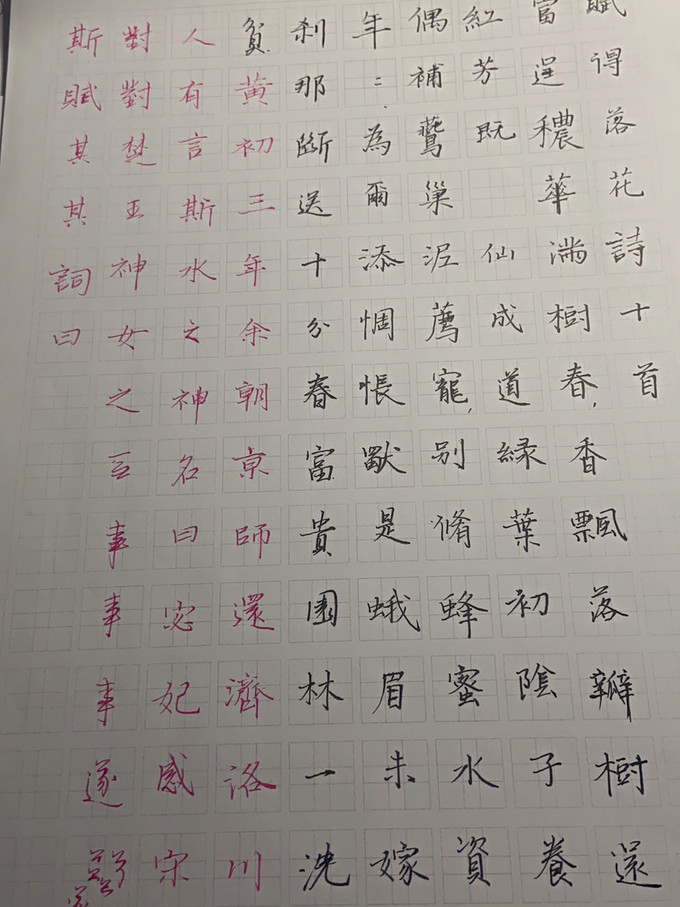 賦得落花詩十首
富逞穠華滿樹春,香飄落瓣樹還
紅芳既仙成道綠葉初陰子養
偶補鷰巢泥薦寵,別脩蜂蜜水資
年:為爾添惆悵獸是蛾眉未嫁
剎那斷送十分春富貴園林一洗
貧黃初三年余朝京師還濟洛川
人有言斯水之神名曰宓妃感宋
對對楚王神女之事事事遂
斯賦其其詞曰